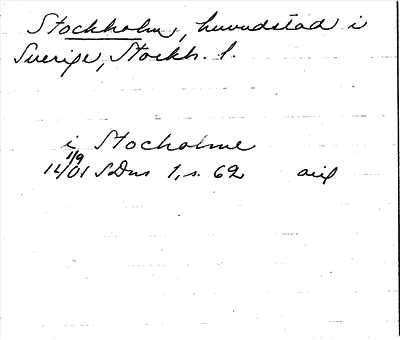 Stockholm, huvudstad i
Sverige, Stockh. l.
i Stocholme
1/9
1401 SDns 1, s. 62 avig